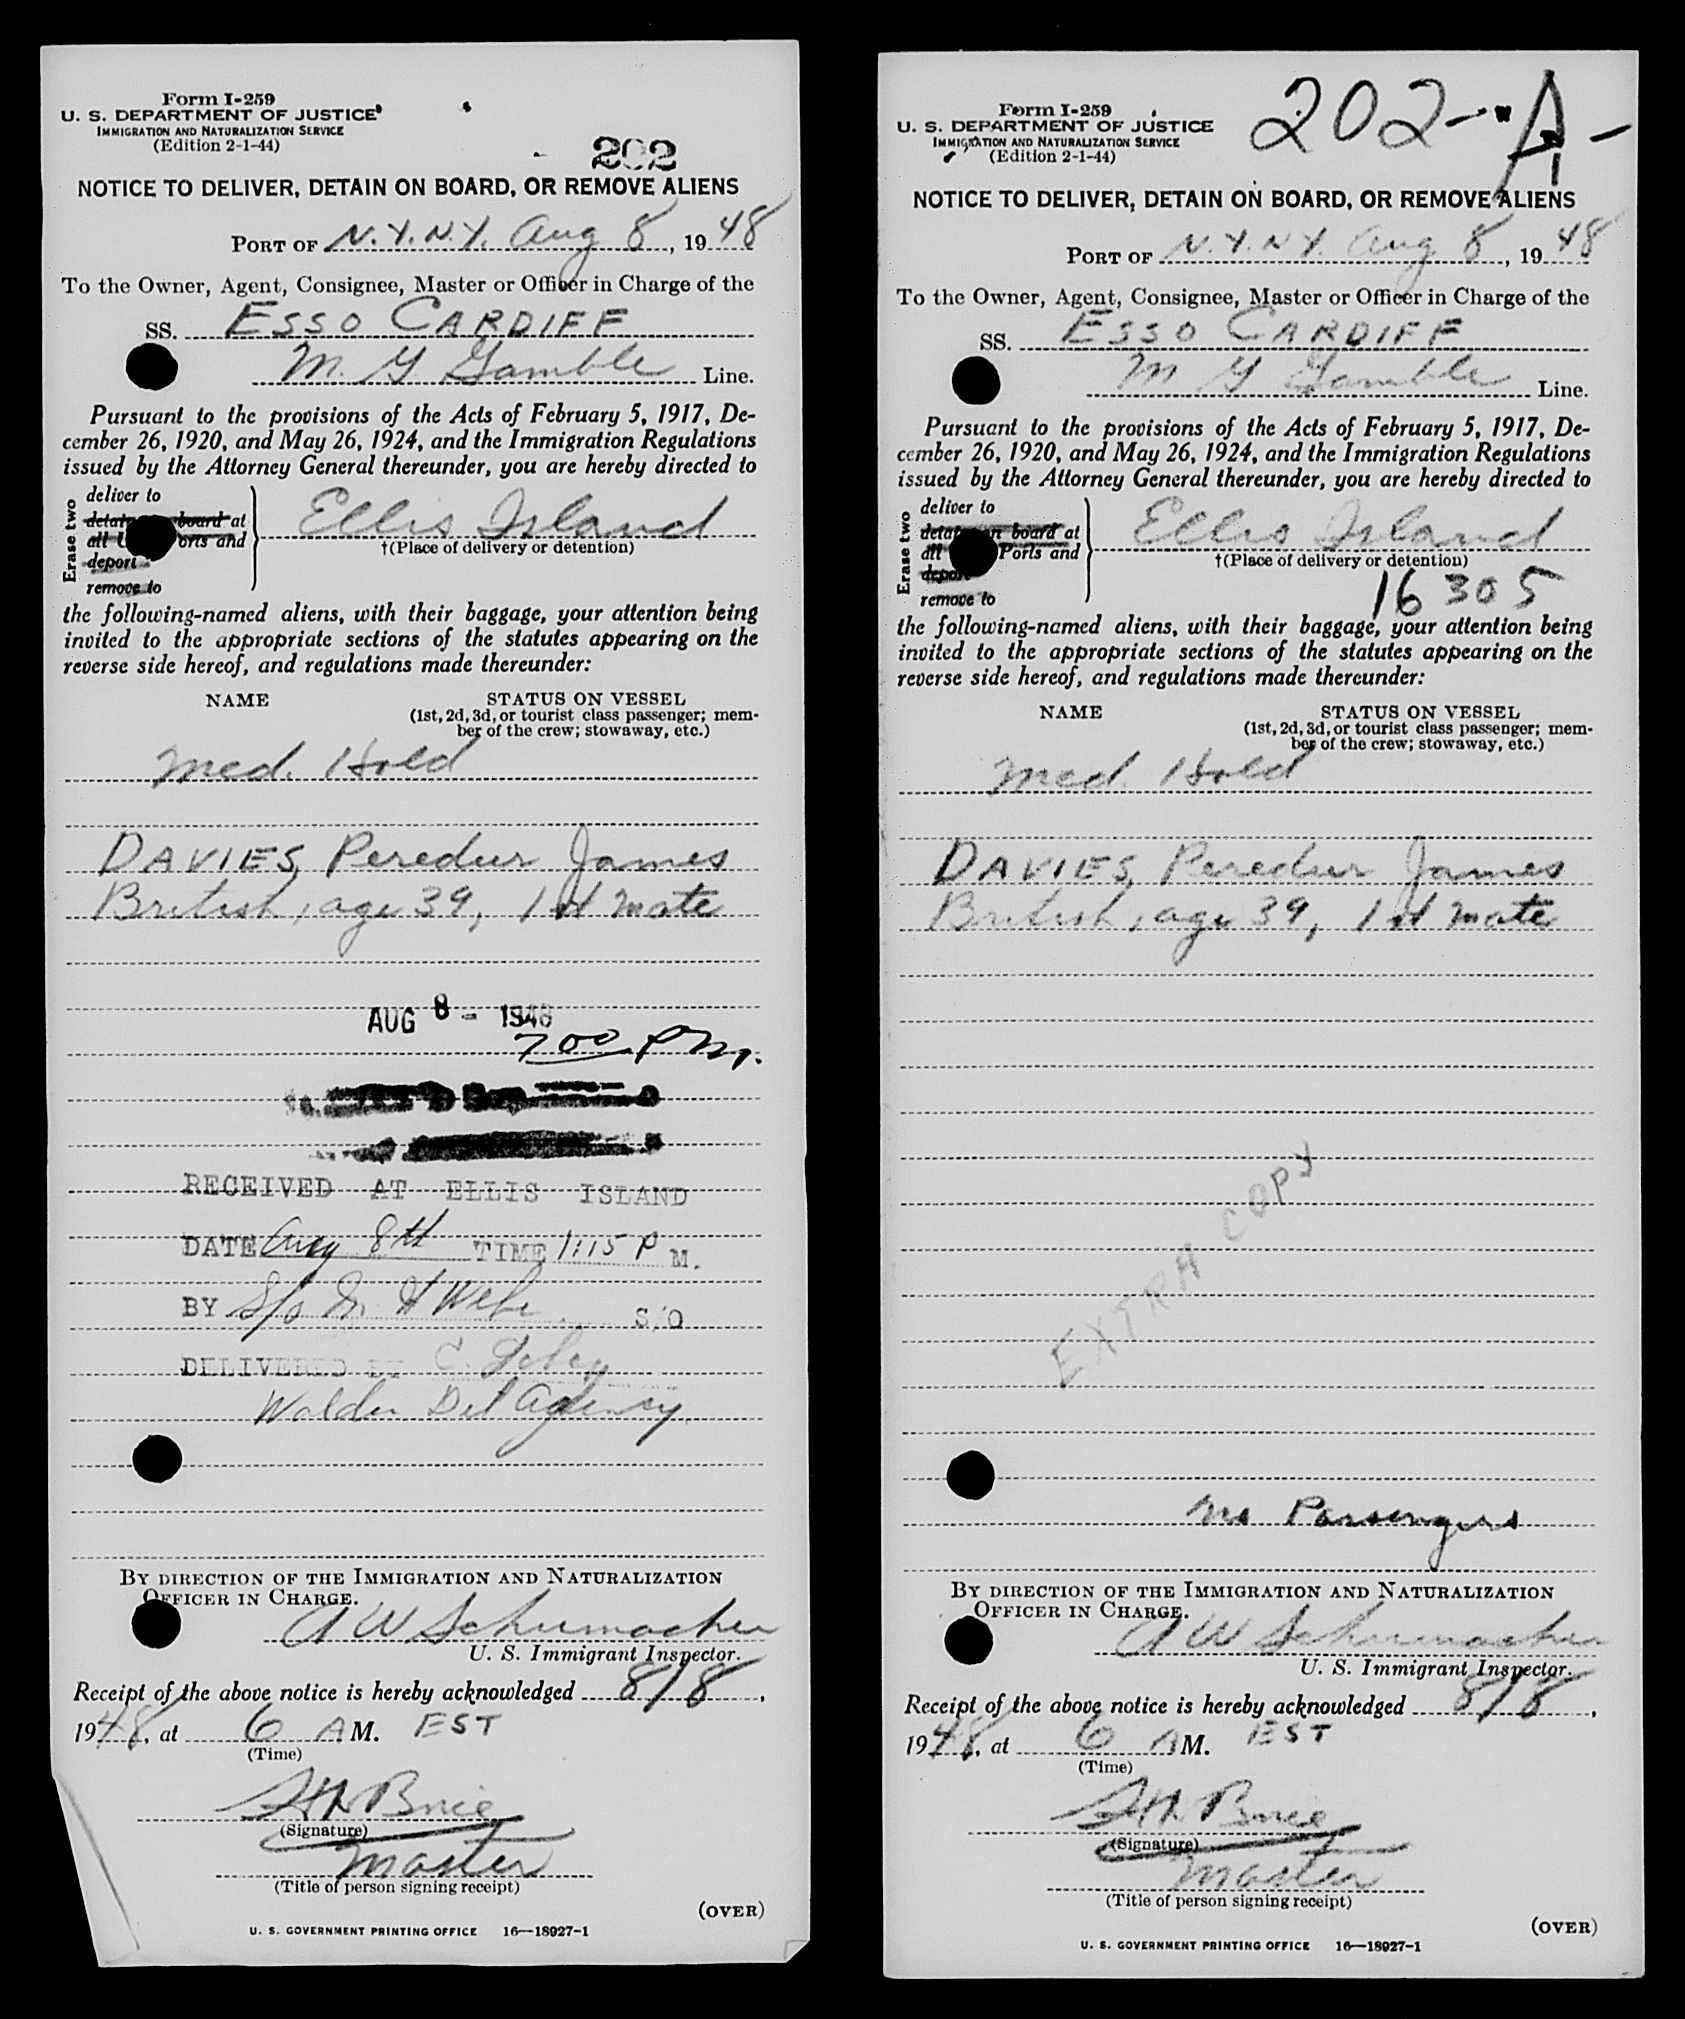 Form I-259
U. S. DEPARTMENT OF JUSTICE
IMMIGRATION AND NATURALIZATION SERVICE
(Edition 2-1-44)
202
NOTICE TO DELIVER, DETAIN ON BOARD, OR REMOVE ALIENS
PORT OF N.Y.N.Y. Aug 8, 1948
To the Owner, Agent, Consignee, Master or Officer in Charge of the
SS. ESSO CARDIFF
M. G Gamble Line.
Pursuant to the provisions of the Acts of February 5, 1917, De-
cember 26, 1920, and May 26, 1924, and the Immigration Regulations
issued by the Attorney General thereunder, you are hereby directed to
Erase two
deliver to
board at
all orts and
deport
remove to
Ellis Island
†(Place of delivery or detention)
the following-named aliens, with their baggage, your attention being
invited to the appropriate sections of the statutes appearing on the
reverse side hereof, and regulations made thereunder:
NAME STATUS ON VESSEL
(1st, 2d, 3d, or tourist class passenger; mem-
ber of the crew; stowaway, etc.)
Med. Hold
DAVIES, Peredur James
British, age 39, 1st Mate
AUG 8 - 1948
7 00 PM.
RECEIVED AT ELLIS ISLAND
DATE Aug 8th TIME 1:15 P M.
BY S/o H S/O
DELIVERED BY C.
Walden Det Agency
BY DIRECTION OF THE IMMIGRATION AND NATURALIZATION
OFFICER IN CHARGE.
A W Schumacher
U. S. Immigrant Inspector.
Receipt of the above notice is hereby acknowledged 8/8,
1948, at 6 AM. EST
(Time)
Brie
(Signature)
Master
(Title of person signing receipt)
(OVER)
U. S. GOVERNMENT PRINTING OFFICE 16—18927-1
Form I-259
U. S. DEPARTMENT OF JUSTICE
IMMIGRATION AND NATURALIZATION SERVICE
(Edition 2-1-44)
202-A-
NOTICE TO DELIVER, DETAIN ON BOARD, OR REMOVE ALIENS
PORT OF N.Y.N.Y. Aug 8, 1948
To the Owner, Agent, Consignee, Master or Officer in Charge of the
SS. ESSO CARDIFF
M G Gamble Line.
Pursuant to the provisions of the Acts of February 5, 1917, De-
cember 26, 1920, and May 26, 1924, and the Immigration Regulations
issued by the Attorney General thereunder, you are hereby directed to
Erase two
deliver to
detain on board at
all Ports and
deport
remove to
Ellis Island
†(Place of delivery or detention)
16305
the following-named aliens, with their baggage, your attention being
invited to the appropriate sections of the statutes appearing on the
reverse side hereof, and regulations made thereunder:
NAME STATUS ON VESSEL
(1st, 2d, 3d, or tourist class passenger; mem-
ber of the crew; stowaway, etc.)
Med. Hold
DAVIES, Peredur James
British, age 39, 1st Mate
EXTRA COPY
No Passengers
BY DIRECTION OF THE IMMIGRATION AND NATURALIZATION
OFFICER IN CHARGE.
A W Schumacher
U. S. Immigrant Inspector.
Receipt of the above notice is hereby acknowledged 8/8,
1948, at 6 AM. EST
(Time)
Brie
(Signature)
Master
(Title of person signing receipt)
(OVER)
U. S. GOVERNMENT PRINTING OFFICE 16—18927-1